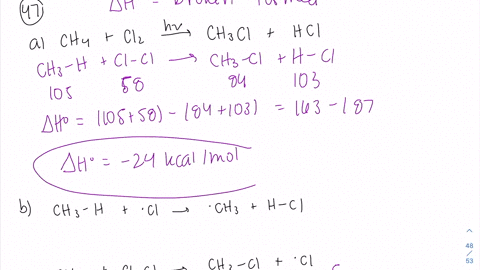 47) ΔH° = broken - formed
a) CH4 + Cl2 hν→ CH3Cl + HCl
CH3-H + Cl-Cl → CH3-Cl + H-Cl
105 58 84 103
ΔH° = (105+58) - (84+103) = 163 - 187
ΔH° = -24 kcal/mol
b) CH3-H + ·Cl → ·CH3 + H-Cl
CH3-Cl + ·Cl
48
/
53